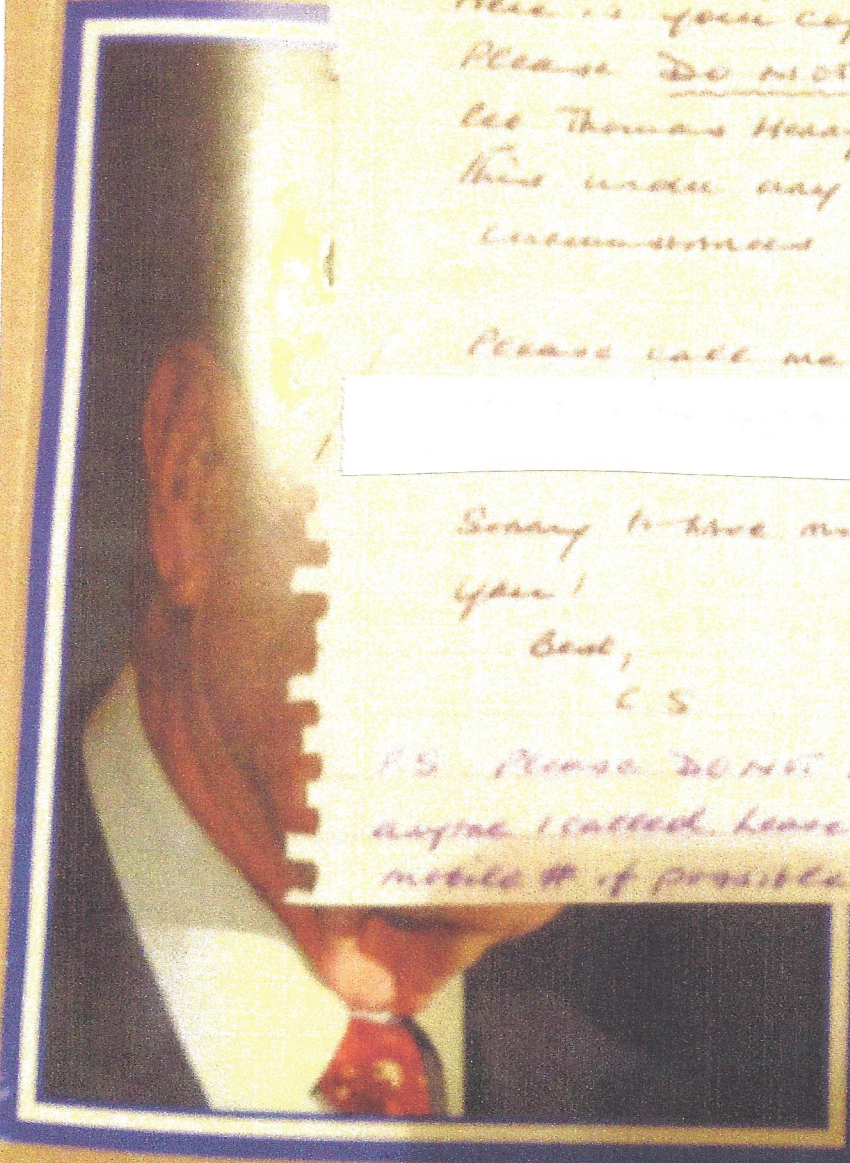 Here is your cop
Please Do not
let Thomas Henry
this under any
circumstances
Please call me
Sorry to have mi
you!
Best,
C S
P.S Please DO NOT
anyone I called. Leave
mobile # if possible